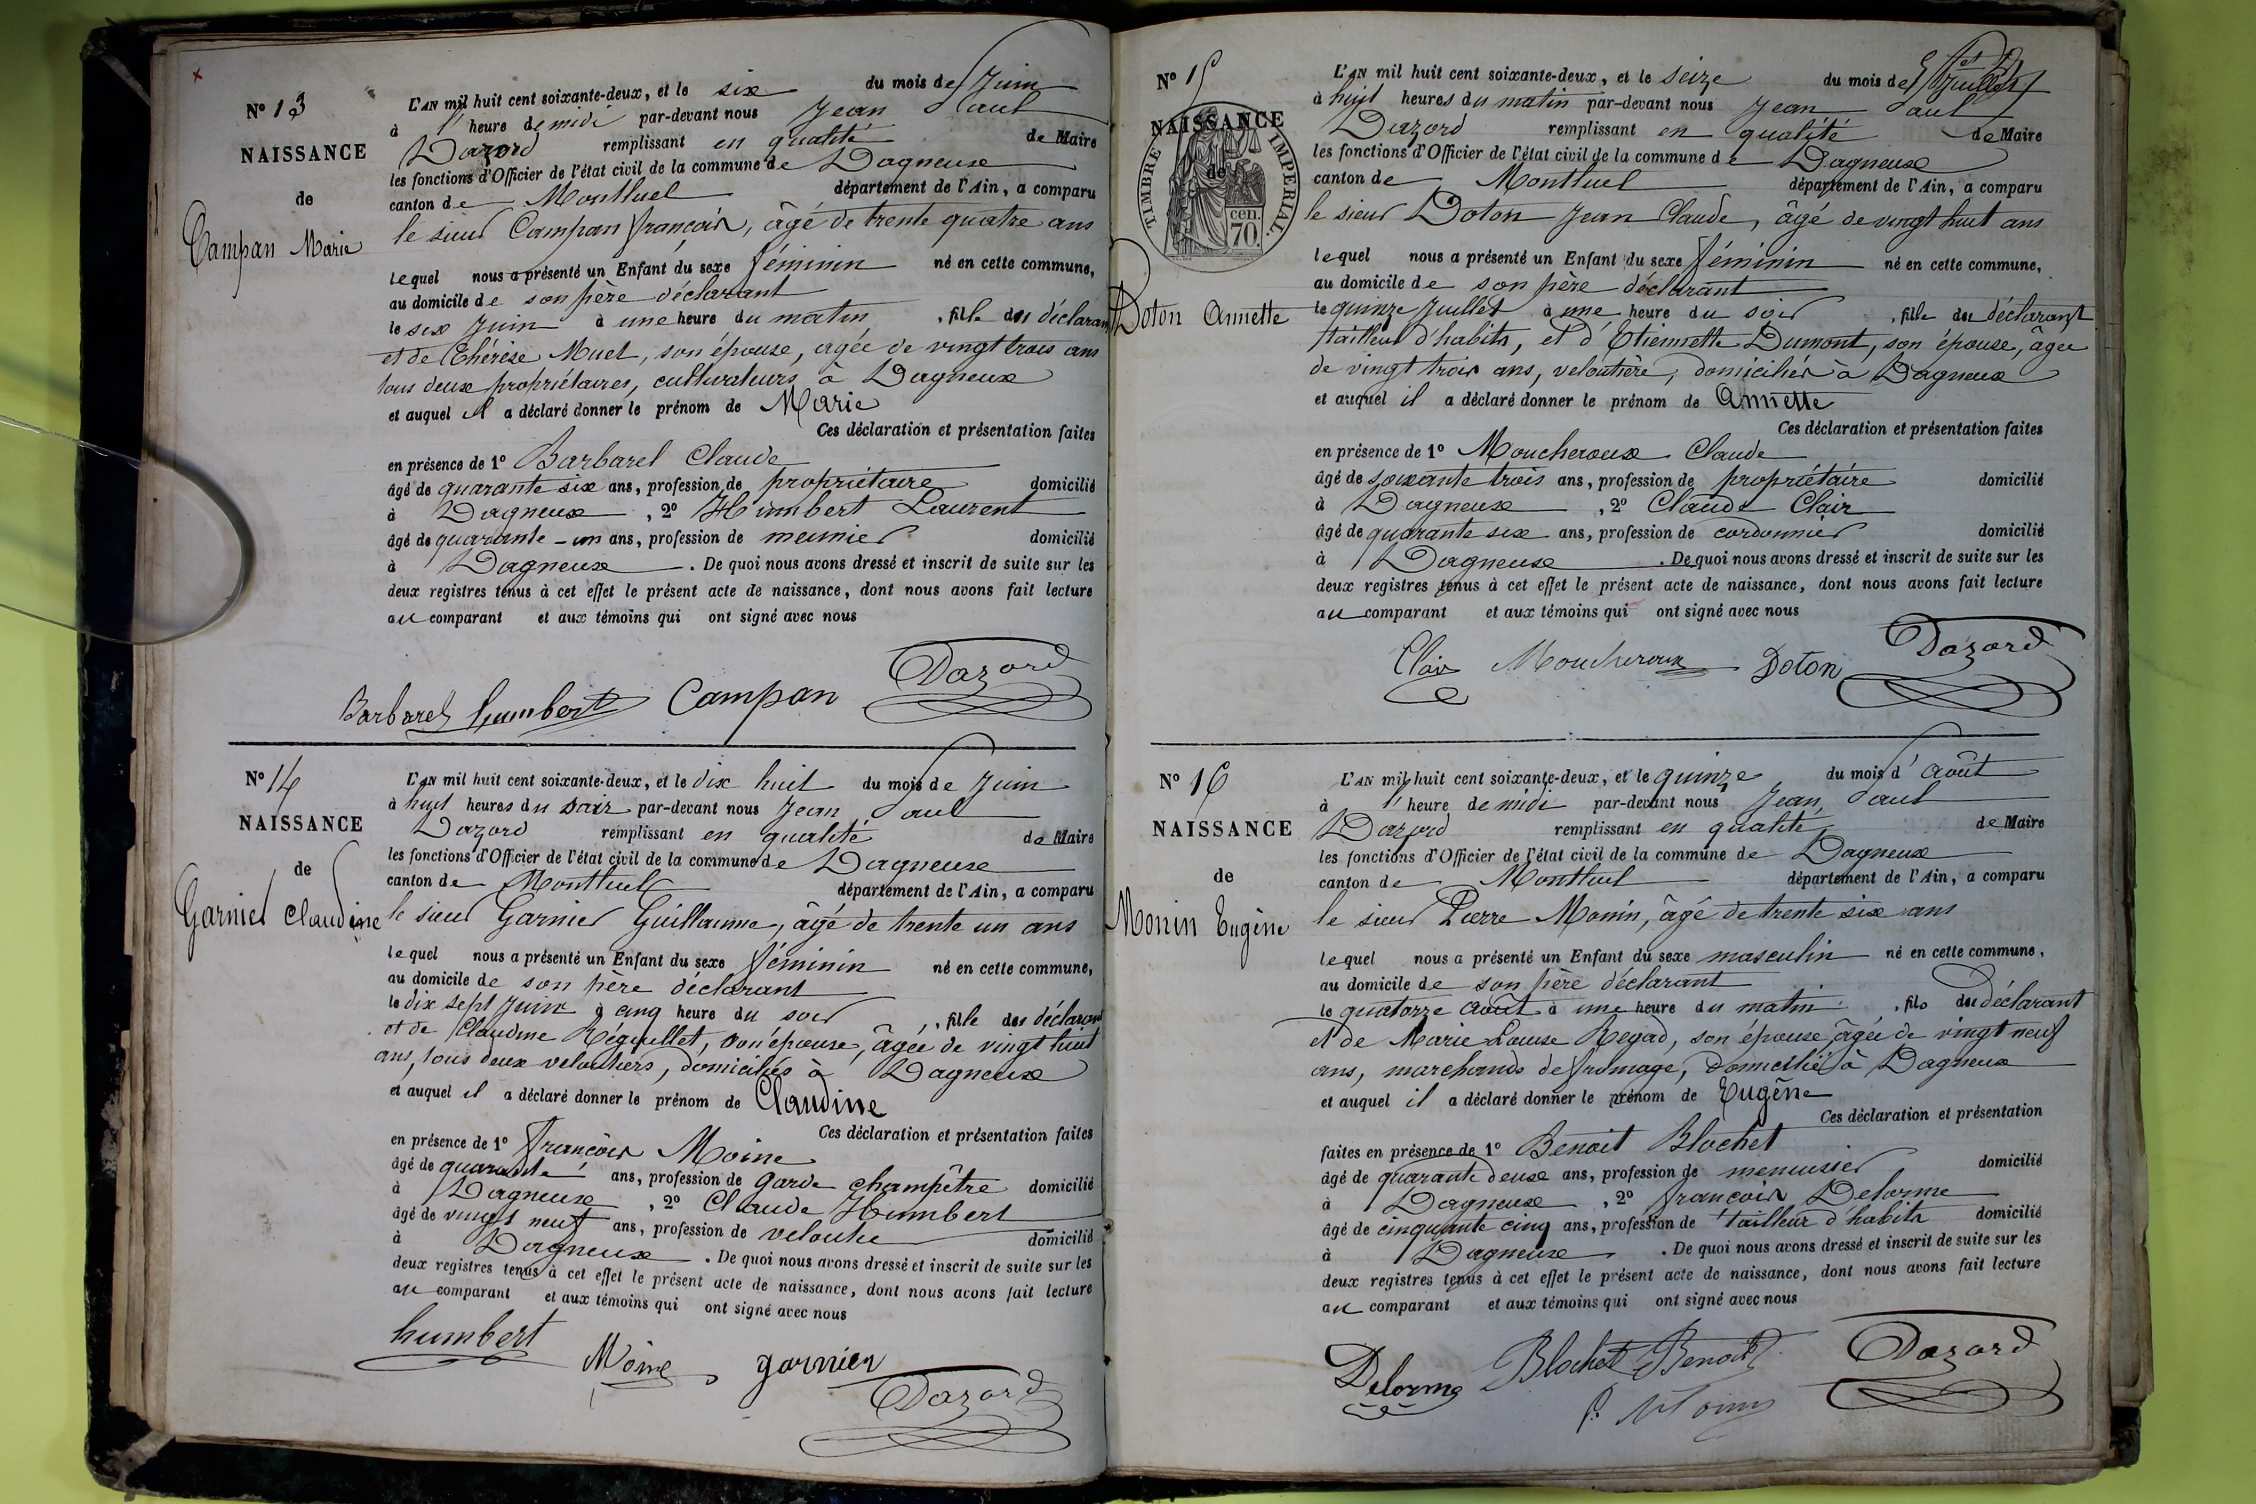 N° 13
NAISSANCE
de
Campan Marie
L'AN mil huit cent soixante-deux, et le six du mois de Juin
à 1 heure de midi par-devant nous Jean Paul
Dazord remplissant en qualité de Maire
les fonctions d'Officier de l'état civil de la commune de Dagneux
canton de Montluel département de l'Ain, a comparu
le sieur Campan françois, âgé de trente quatre ans
lequel nous a présenté un Enfant du sexe féminin né en cette commune,
au domicile de son père déclarant
le six Juin à une heure du matin, fille du déclarant
et de Thérèse Muet, son épouse, agée de vingt trois ans
tous deux propriétaires, cultivateurs à Dagneux
et auquel il a déclaré donner le prénom de Marie
Ces déclaration et présentation faites
en présence de 1° Barbarel Claude
âgé de quarante six ans, profession de propriétaire domicilié
à Dagneux, 2° Humbert Laurent
âgé de quarante-un ans, profession de meunier domicilié
à Dagneux. De quoi nous avons dressé et inscrit de suite sur les
deux registres tenus à cet effet le présent acte de naissance, dont nous avons fait lecture
au comparant et aux témoins qui ont signé avec nous
Barbarel humbert Campan Dazord
N° 14
NAISSANCE
de
Garnier Claudine
L'AN mil huit cent soixante-deux, et le dix huit du mois de Juin
à huit heures du soir par-devant nous Jean Paul
Dazord remplissant en qualité de Maire
les fonctions d'Officier de l'état civil de la commune de Dagneux
canton de Montluel département de l'Ain, a comparu
le sieur Garnier Guillaume, âgé de trente un ans
lequel nous a présenté un Enfant du sexe féminin né en cette commune,
au domicile de son père déclarant
le dix sept Juin à cinq heure du soir, fille du déclarant
et de Claudine Réguillet, son épouse, âgée de vingt huit
ans, tous deux veloutiers, domiciliés à Dagneux
et auquel il a déclaré donner le prénom de Claudine
Ces déclaration et présentation faites
en présence de 1° françois Moine
âgé de quarante ans, profession de garde champêtre domicilié
à Dagneux, 2° Claude Humbert
âgé de vingt neuf ans, profession de veloutier domicilié
à Dagneux. De quoi nous avons dressé et inscrit de suite sur les
deux registres tenus à cet effet le présent acte de naissance, dont nous avons fait lecture
au comparant et aux témoins qui ont signé avec nous
humbert Moine garnier Dazord
N° 15
NAISSANCE
de
TIMBRE IMPERIAL.
cen.
70.
Doton Annette
L'AN mil huit cent soixante-deux, et le seize du mois de Juillet
à huit heures du matin par-devant nous Jean Paul
Dazord remplissant en qualité de Maire
les fonctions d'Officier de l'état civil de la commune de Dagneux
canton de Montluel département de l'Ain, a comparu
le sieur Doton Jean Claude, âgé de vingt huit ans
lequel nous a présenté un Enfant du sexe féminin né en cette commune,
au domicile de son père déclarant
le quinze Juillet à une heure du soir, fille du déclarant
tailleur d'habits, et d'Etiennette Dumont, son épouse, âgée
de vingt trois ans, veloutière, domiciliés à Dagneux
et auquel il a déclaré donner le prénom de Annette
Ces déclaration et présentation faites
en présence de 1° Moucheroux Claude
âgé de soixante trois ans, profession de propriétaire domicilié
à Dagneux, 2° Claude Clair
âgé de quarante six ans, profession de cordonnier domicilié
à Dagneux. De quoi nous avons dressé et inscrit de suite sur les
deux registres tenus à cet effet le présent acte de naissance, dont nous avons fait lecture
au comparant et aux témoins qui ont signé avec nous
Clair Moucheroux Doton Dazord
N° 16
NAISSANCE
de
Monin Eugène
L'AN mil huit cent soixante-deux, et le quinze du mois d'août
à 1 heure de midi par-devant nous Jean Paul
Dazord remplissant en qualité de Maire
les fonctions d'Officier de l'état civil de la commune de Dagneux
canton de Montluel département de l'Ain, a comparu
le sieur Pierre Monin, âgé de trente six ans
lequel nous a présenté un Enfant du sexe masculin né en cette commune,
au domicile de son père déclarant
le quatorze août à une heure du matin, fils du déclarant
et de Marie Louise Regad, son épouse, âgée de vingt neuf
ans, marchands de fromage, domiciliés à Dagneux
et auquel il a déclaré donner le prénom de Eugène
Ces déclaration et présentation
faites en présence de 1° Benoit Blochet
âgé de quarante deux ans, profession de menuisier domicilié
à Dagneux, 2° françois Delorme
âgé de cinquante cinq ans, profession de tailleur d'habits domicilié
à Dagneux. De quoi nous avons dressé et inscrit de suite sur les
deux registres tenus à cet effet le présent acte de naissance, dont nous avons fait lecture
au comparant et aux témoins qui ont signé avec nous
Delorme Blochet Benoit Dazord
P. Monin